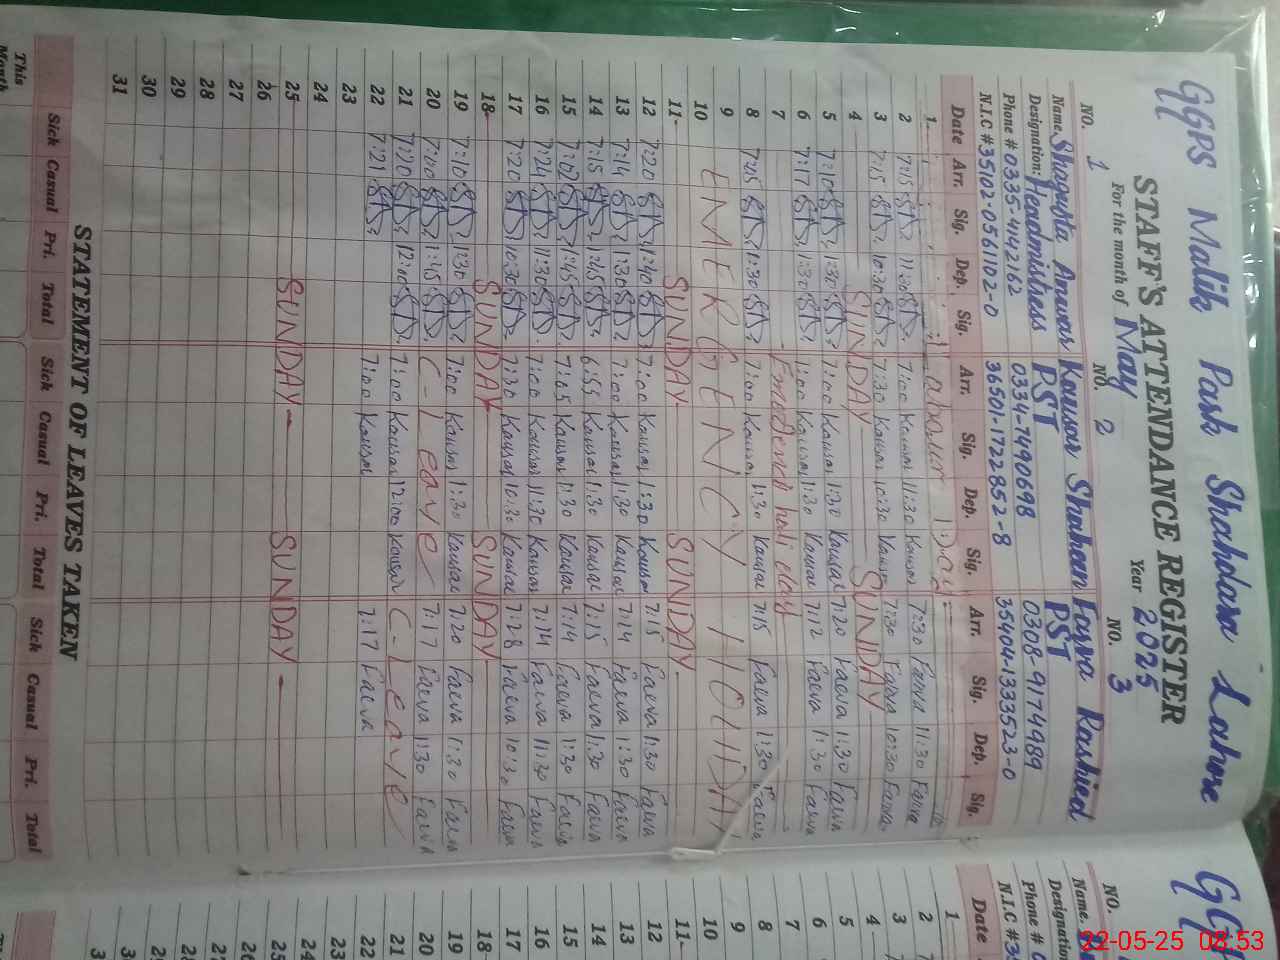 GGPS Malik Park Shahdara Lahore
STAFF'S ATTENDANCE REGISTER
For the month of May Year 2025
NO. 1 NO. 2 NO. 3
Name. Shagufta Anwar Kausar Shaheen Fozva Rashied
Designation: Headmistress PST PST
Phone # 0335-4142162 0334-7490698 0308-9174989
N.I.C # 35102-0561102-0 36501-1722852-8 35104-1333523-0
Date Arr. Sig. Dep. Sig. Arr. Sig. Dep. Sig. Arr. Sig. Dep. Sig.
1 Labour Day
2 7:15 11:30 7:00 Kausar 11:30 Kausar 7:30 Faeva 11:30 Faeva
3 7:15 10:30 7:30 Kausar 10:30 Kausar 7:30 Faeva 10:30 Faeva
4 SUNDAY SUNDAY
5 7:10 1:30 7:00 Kausar 1:30 Kausar 7:20 Faeva 1:30 Faeva
6 7:17 1:30 7:00 Kausar 1:30 Kausar 7:12 Faeva 1:30 Faeva
7
8 7:15 1:30 7:00 Kausar 1:30 Kausar 7:15 Faeva 1:30 Faeva
9 EMERGENCY HOLIDAY
10
11 SUNDAY SUNDAY
12 7:20 1:40 7:00 Kausar 1:30 Kausar 7:15 Faeva 1:30 Faeva
13 7:14 1:30 7:00 Kausar 1:30 Kausar 7:14 Faeva 1:30 Faeva
14 7:15 1:45 6:55 Kausar 1:30 Kausar 7:15 Faeva 1:30 Faeva
15 7:02 1:45 7:05 Kausar 1:30 Kausar 7:14 Faeva 1:30 Faeva
16 7:24 11:30 7:00 Kausar 11:30 Kausar 7:14 Faeva 11:30 Faeva
17 7:20 10:30 7:30 Kausar 10:30 Kausar 7:28 Faeva 10:30 Faeva
18 SUNDAY SUNDAY
19 7:10 1:30 7:00 Kausar 1:30 Kausar 7:20 Faeva 1:30 Faeva
20 7:10 1:45 C-Leave 7:17 Faeva 1:30 Faeva
21 7:20 12:00 7:00 Kausar 12:00 Kausar C-Leave
22 7:21 7:00 Kausar 7:17 Faeva
23
24
25 SUNDAY SUNDAY
26
27
28
29
30
31
STATEMENT OF LEAVES TAKEN
Sick Casual Pri. Total Sick Casual Pri. Total Sick Casual Pri. Total
This Month
NO.
Name.
Designation
Phone #
N.I.C #
Date
1
2
3
4
5
6
7
8
9
10
11
12
13
14
15
16
17
18
19
20
21
22
23
24
25
26
27
28
22-05-25 08:53